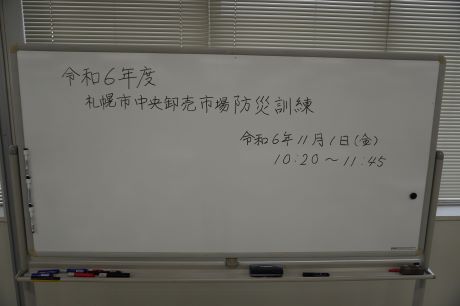 令和6年度
札幌市中央卸売市場防災訓練
令和6年11月1日(金)
10:20～11:45